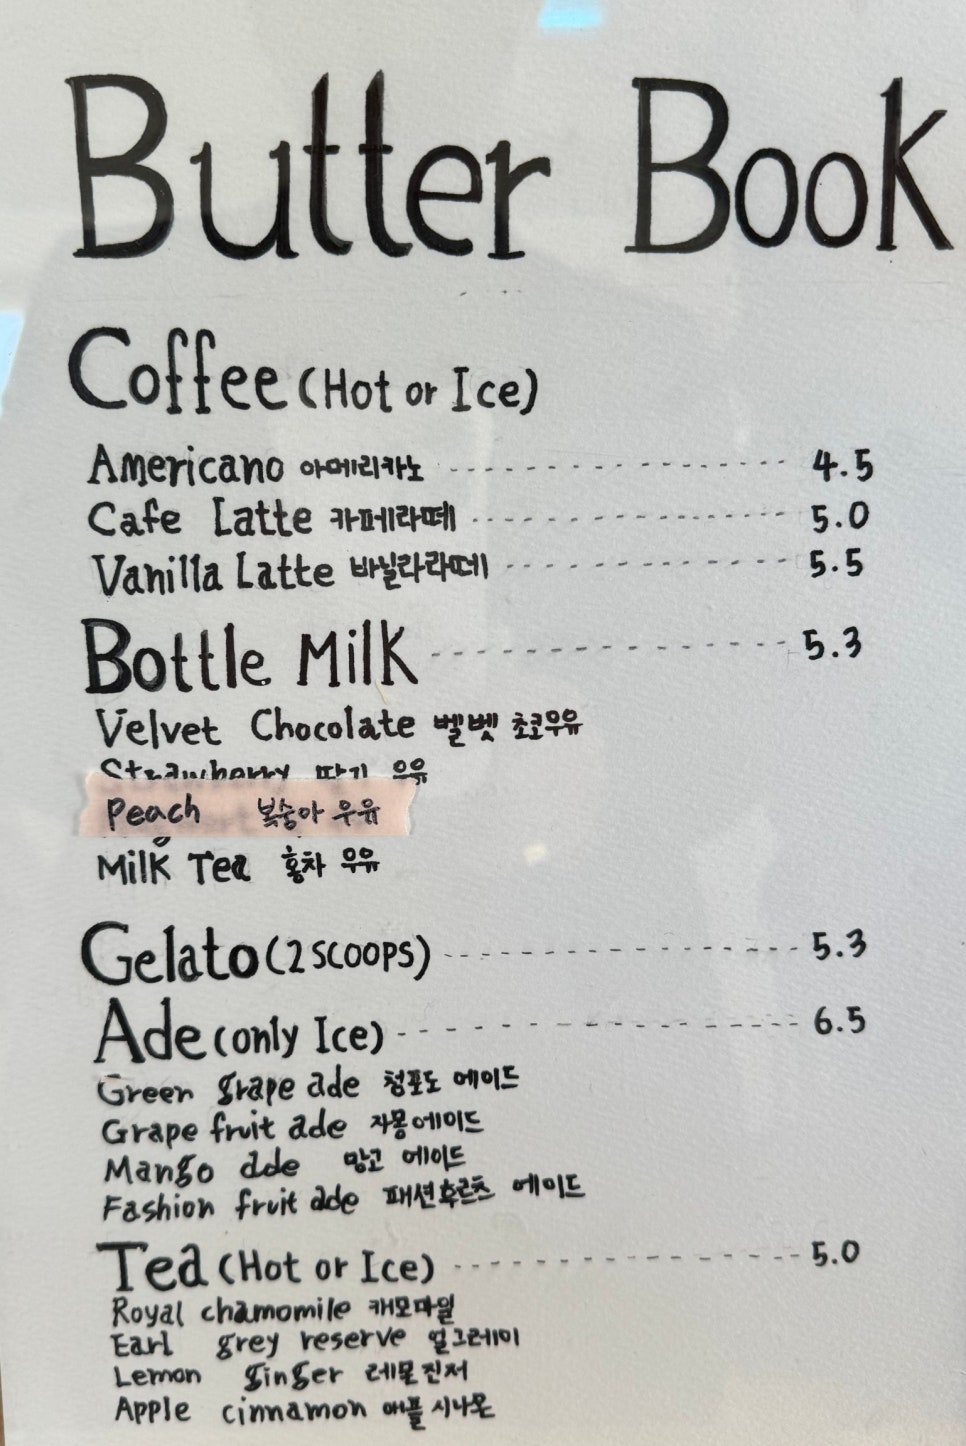 Butter Book
Coffee (Hot or Ice)
Americano 아메리카노 4.5
Cafe Latte 카페라떼 5.0
Vanilla Latte 바닐라라떼 5.5
Bottle Milk 5.3
Velvet Chocolate 벨벳 초코우유
Strawberry 딸기 우유
Peach 복숭아 우유
Milk Tea 홍차 우유
Gelato (2 SCOOPS) 5.3
Ade (only Ice) 6.5
Green grape ade 청포도 에이드
Grape fruit ade 자몽에이드
Mango ade 망고 에이드
Fashion fruit ade 패션후르츠 에이드
Tea (Hot or Ice) 5.0
Royal chamomile 캐모마일
Earl grey reserve 얼그레이
Lemon ginger 레몬진저
Apple cinnamon 애플 시나몬